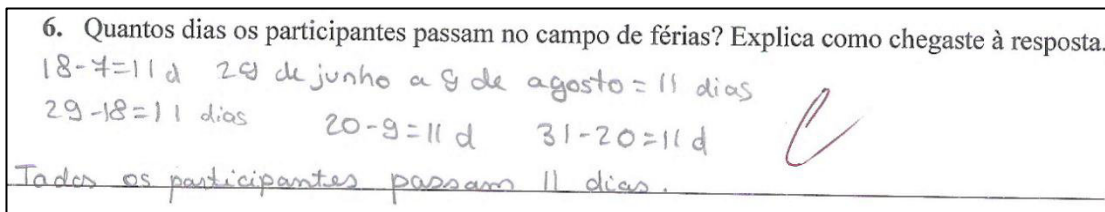 6. Quantos dias os participantes passam no campo de férias? Explica como chegaste à resposta.
18-7=11 d 29 de junho a 9 de agosto = 11 dias
29-18=11 dias 20-9=11 d 31-20=11 d
Todos os participantes passam 11 dias.